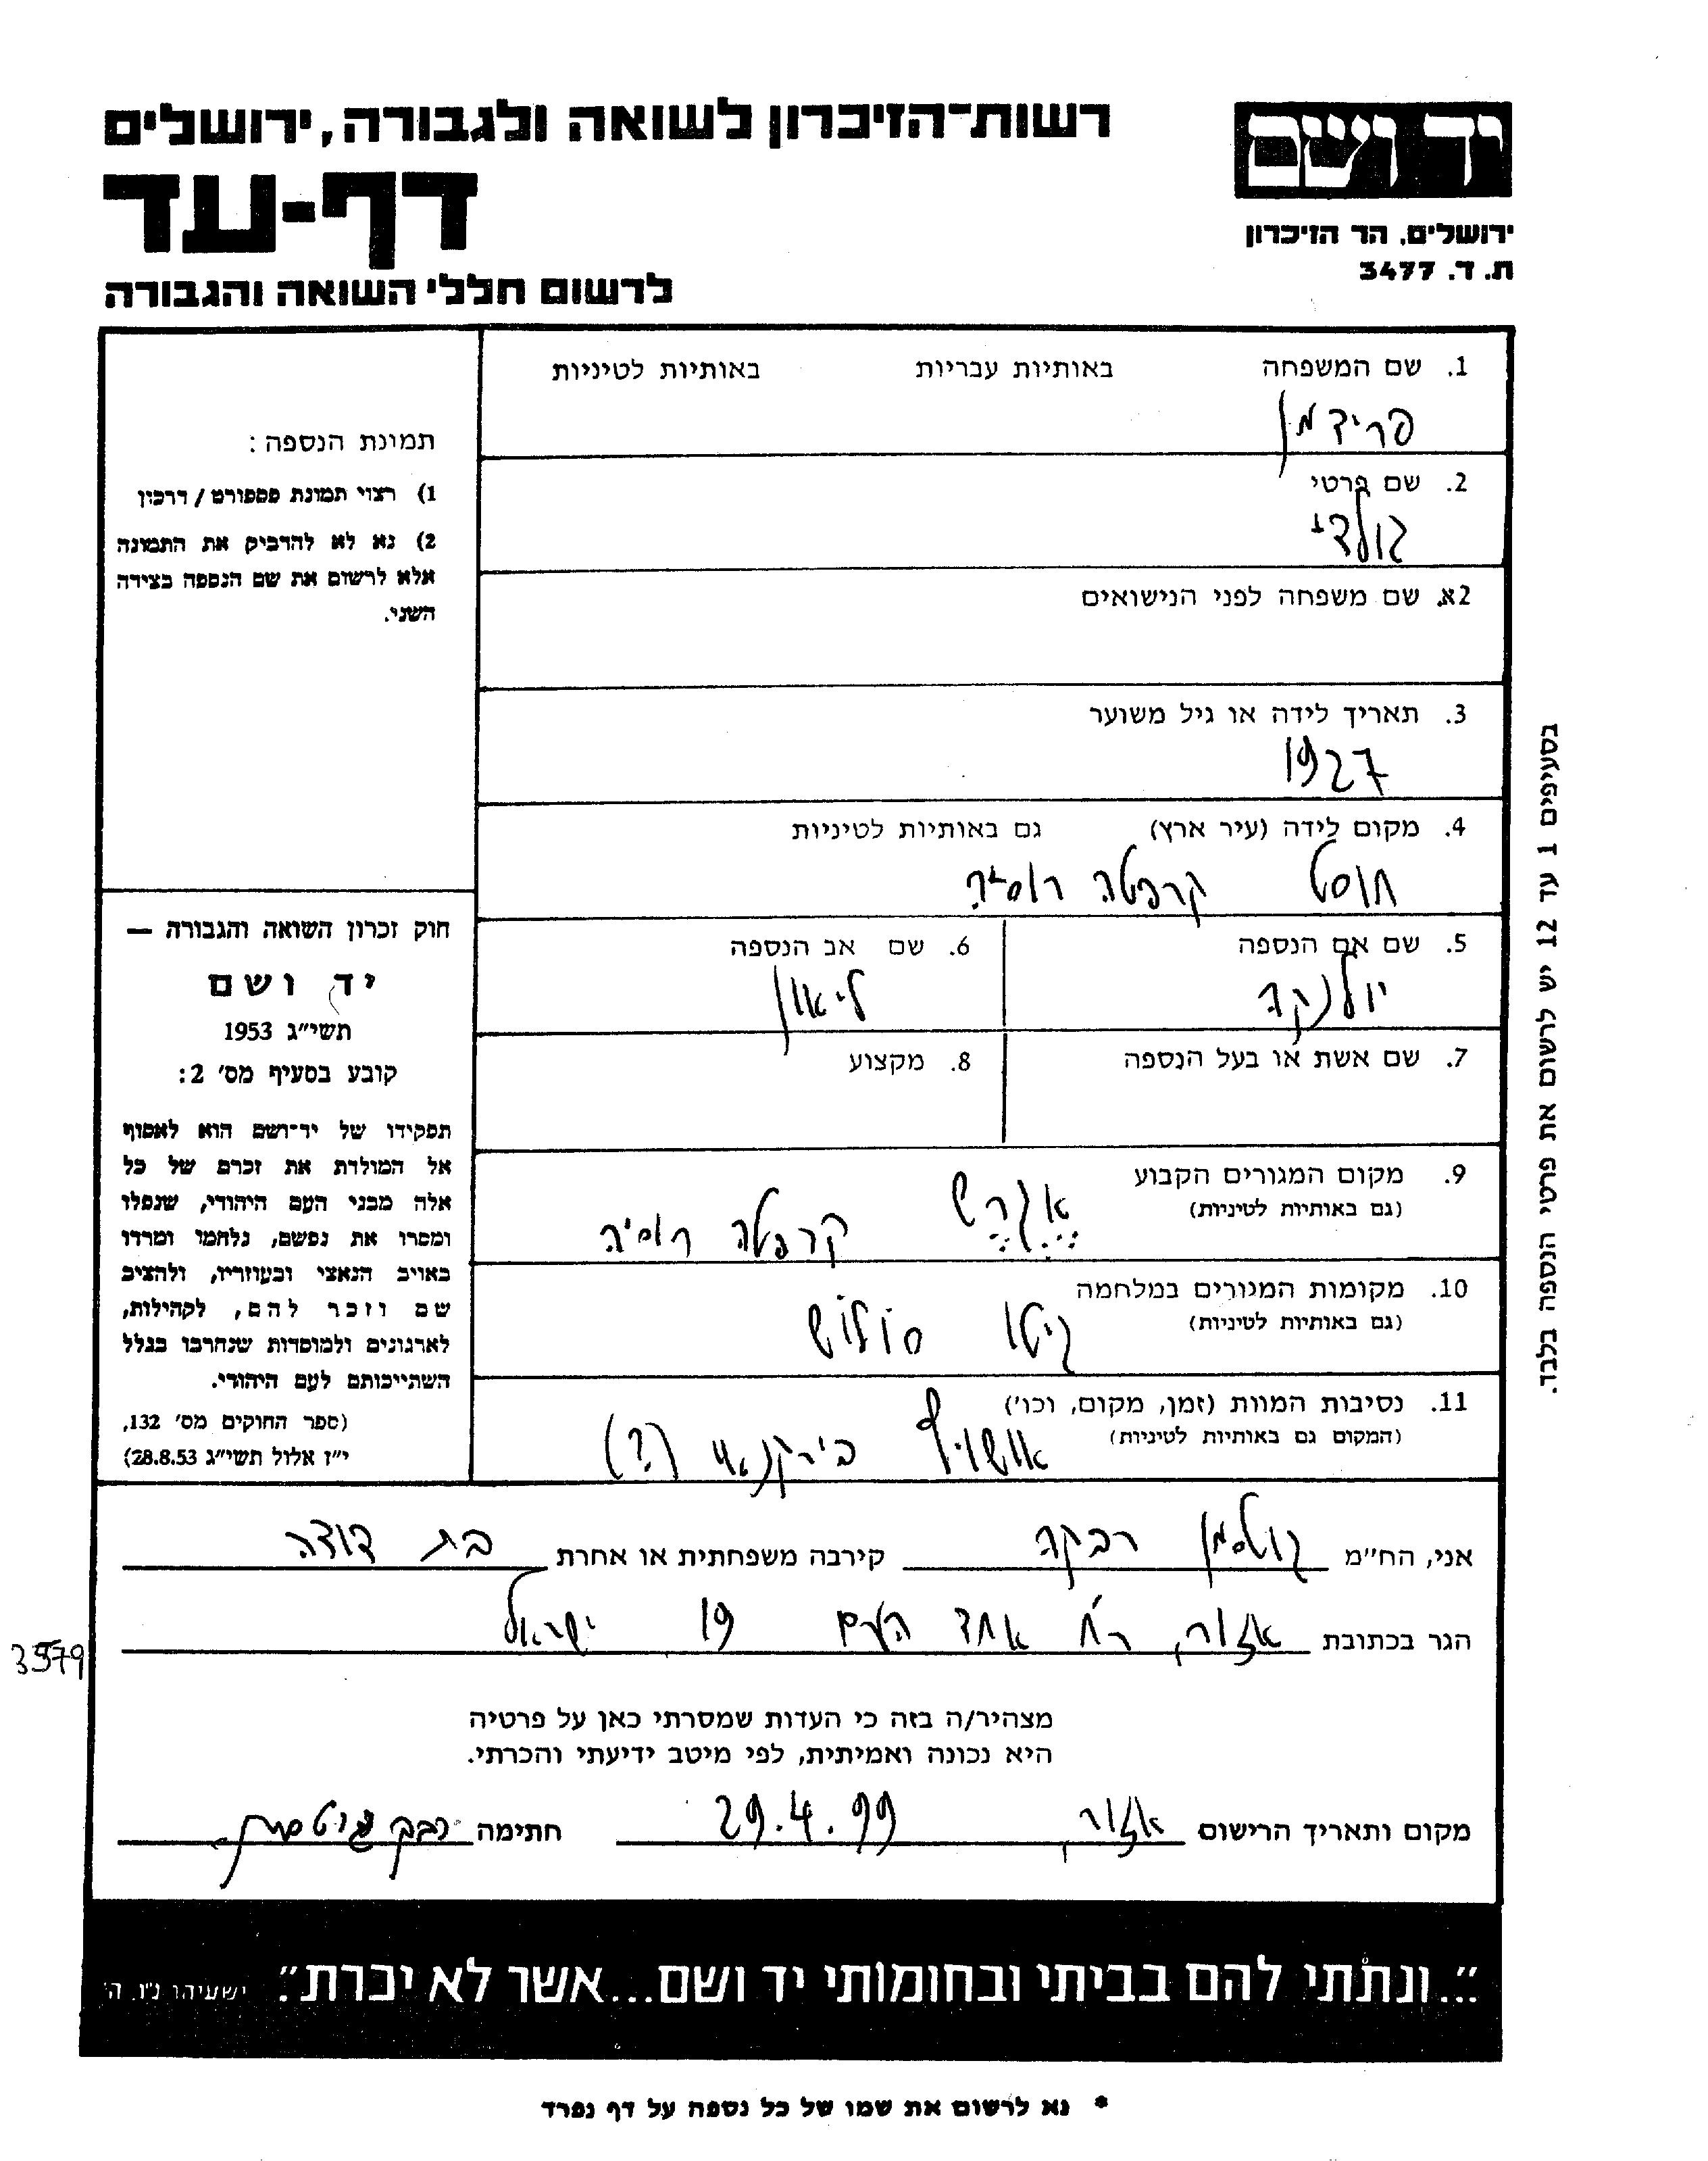 רשות-הזיכרון לשואה ולגבורה, ירושלים
דף-עד
לרשום חללי השואה והגבורה
יד ושם
ירושלים, הר הזיכרון
ת. ד. 3477
1. שם המשפחה באותיות עבריות באותיות לטיניות
פרידמן
2. שם פרטי
גולדי
2א. שם משפחה לפני הנישואים
3. תאריך לידה או גיל משוער
1927
4. מקום לידה (עיר ארץ) גם באותיות לטיניות
חוסט קרפטה רוסיה
5. שם אם הנספה
יולנקה
6. שם אב הנספה
ליאון
7. שם אשת או בעל הנספה
8. מקצוע
9. מקום המגורים הקבוע
(גם באותיות לטיניות)
קרפטה רוסיה
10. מקומות המגורים במלחמה
(גם באותיות לטיניות)
גיטו סולוש
11. נסיבות המוות (זמן, מקום, וכו')
(המקום גם באותיות לטיניות)
אושויץ בירקנאו (?)
תמונת הנספה:
1) רצוי תמונת פספורט / דרכון
2) נא לא להדביק את התמונה
אלא לרשום את שם הנספה בצידה
השני.
חוק זכרון השואה והגבורה —
יד ושם
תשי"ג 1953
קובע בסעיף מס' 2:
תפקידו של יד-ושם הוא לאסוף
אל המולדת את זכרם של כל
אלה מבני העם היהודי, שנפלו
ומסרו את נפשם, נלחמו ומרדו
באויב הנאצי ובעוזריו, ולהציב
שם וזכר להם, לקהילות,
לארגונים ולמוסדות שנחרבו בגלל
השתייכותם לעם היהודי.
(ספר החוקים מס' 132,
י"ז אלול תשי"ג 28.8.53)
בסעיפים 1 עד 12 יש לרשום את פרטי הנספה בלבד.
אני, הח"מ גוטסמן רבקה קירבה משפחתית או אחרת בת דודה
הגר בכתובת אזור, רח' אחד העם 19 ישראל
3579
מצהיר/ה בזה כי העדות שמסרתי כאן על פרטיה
היא נכונה ואמיתית, לפי מיטב ידיעתי והכרתי.
מקום ותאריך הרישום אזור, 29.4.99 חתימה רבקה גוטסמן
"...ונתתי להם בביתי ובחומותי יד ושם...אשר לא יכרת". ישעיהו נ"ו, ה'
* נא לרשום את שמו של כל נספה על דף נפרד